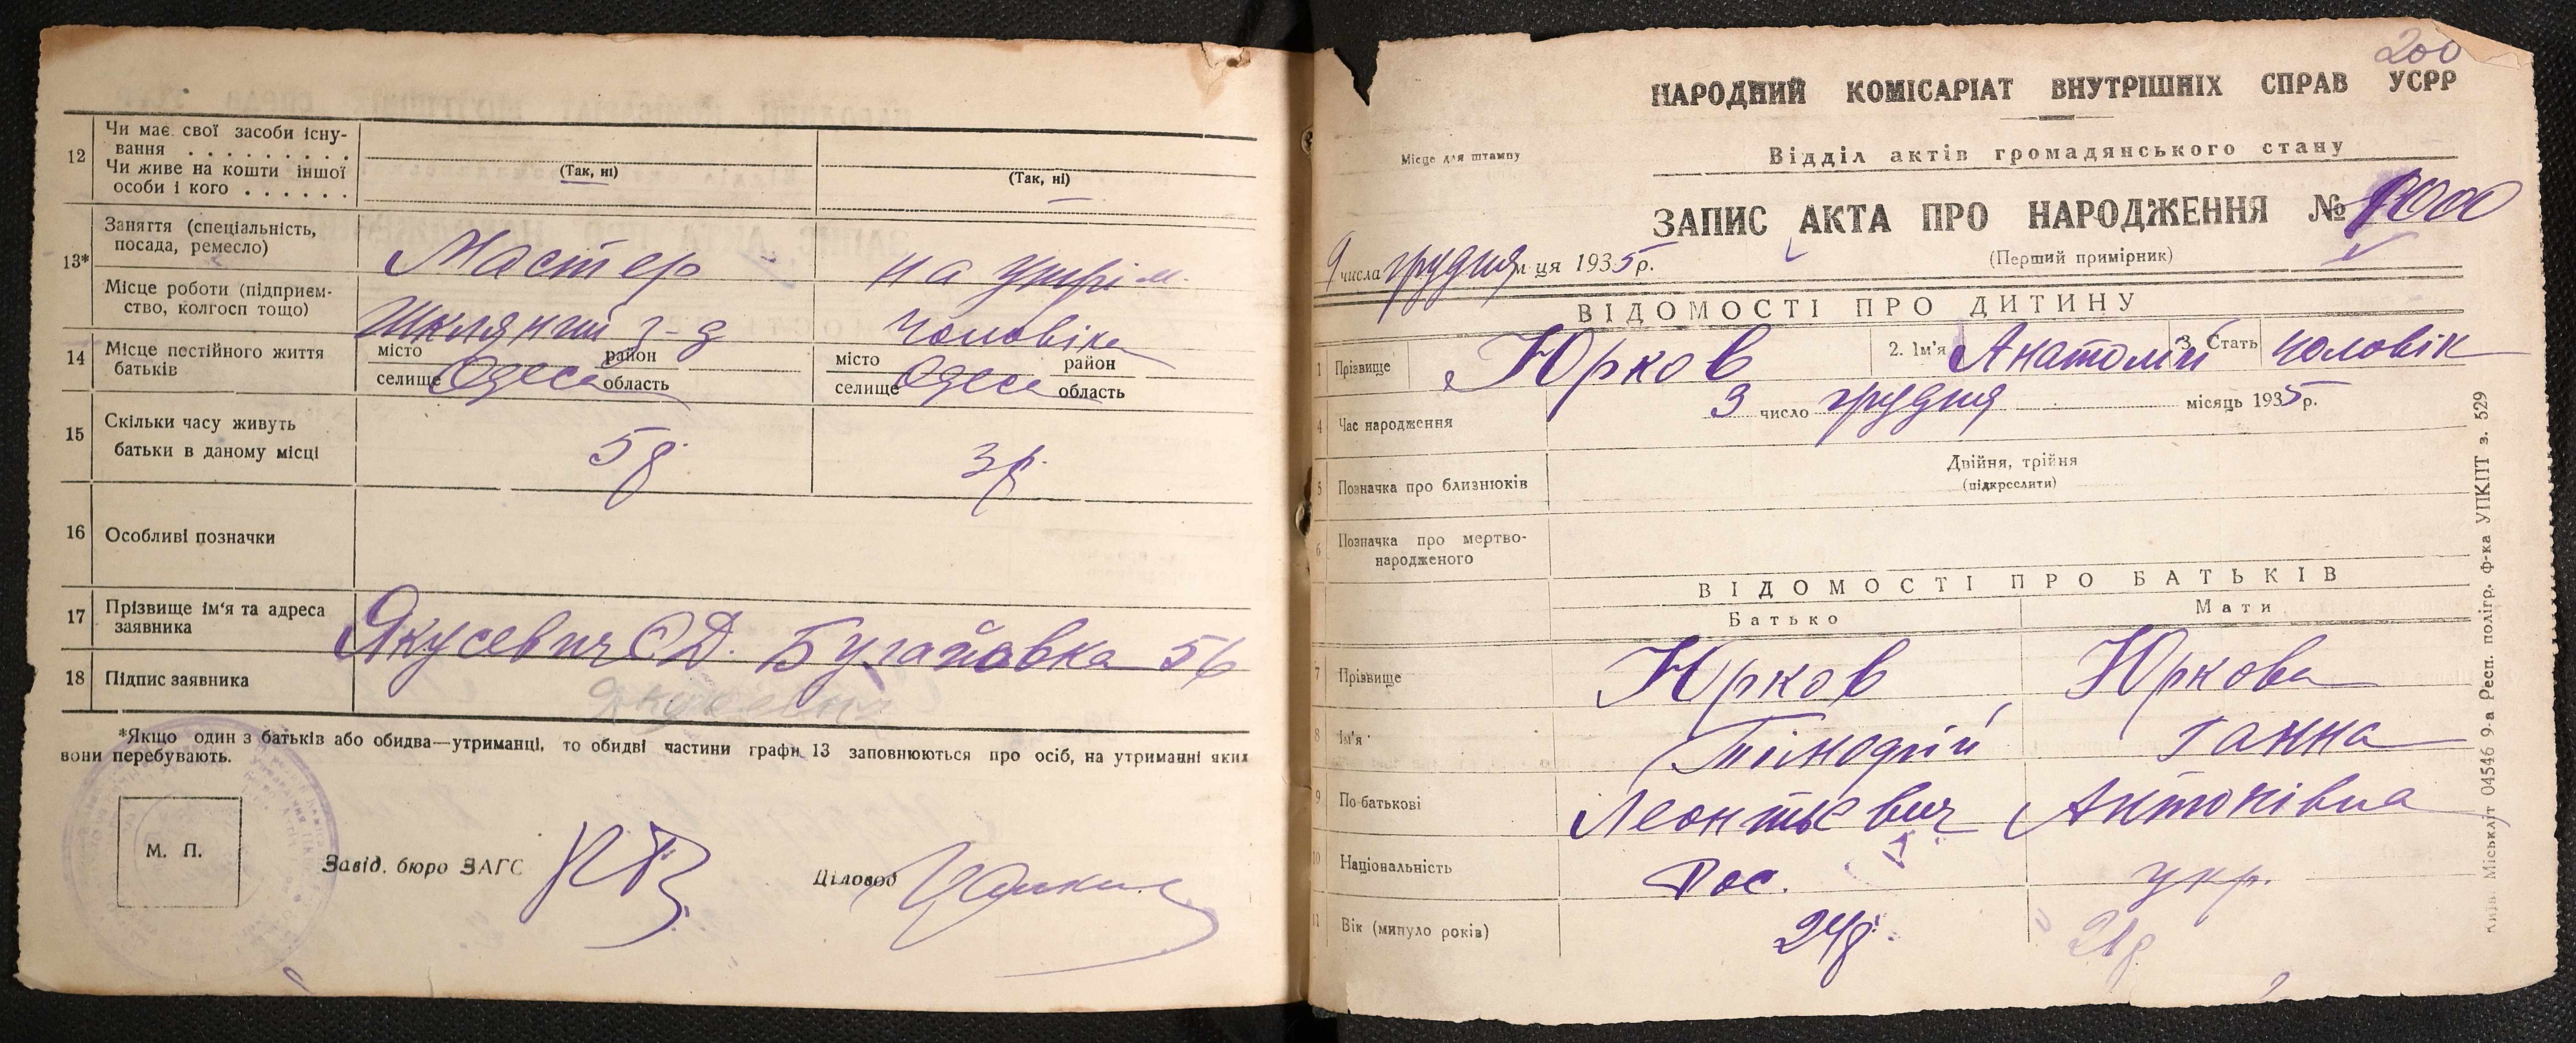 12 Чи має свої засоби існу-
вання . . . . . . . . .
Чи живе на кошти іншої
особи і кого . . . . . .
(Так, ні) (Так, ні)
13* Заняття (спеціальність,
посада, ремесло) Мастер на утрім.
Місце роботи (підприєм-
ство, колгосп тощо) Шкляний з-д чоловіка
14 Місце постійного життя
батьків
місто район місто район
селище Одеса область селище Одеса область
15 Скільки часу живуть
батьки в даному місці 5 р. 3 р.
16 Особливі позначки
17 Прізвище ім'я та адреса
заявника Якусевич С Д. Бугайовка 56
18 Підпис заявника Якусевич
*Якщо один з батьків або обидва—утриманці, то обидві частини графи 13 заповнюються про осіб, на утриманні яких
вони перебувають.
М. П.
Завід. бюро ЗАГС
Діловод
200
НАРОДНИЙ КОМІСАРІАТ ВНУТРІШНІХ СПРАВ УСРР
Місце для штампу
Відділ актів громадянського стану
ЗАПИС АКТА ПРО НАРОДЖЕННЯ №
(Перший примірник)
9 числа грудня м-ця 1935 р.
ВІДОМОСТІ ПРО ДИТИНУ
1 Прізвище Юрков 2. Ім'я Анатолій 3. Стать чоловік
4 Час народження 3 число грудня місяць 1935 р.
5 Позначка про близнюків Двійня, трійня
(підкреслити)
6 Позначка про мертво-
народженого
ВІДОМОСТІ ПРО БАТЬКІВ
Батько Мати
7 Прізвище Юрков Юркова
8 Ім'я Ганна
9 По-батькові Леонтьєвич Антонівна
10 Національність Рос. укр.
11 Вік (минуло років) 24 р. 21 р.
Київ. Міськліт 04546 9-а Респ. полігр. ф-ка УПКПТ з. 529